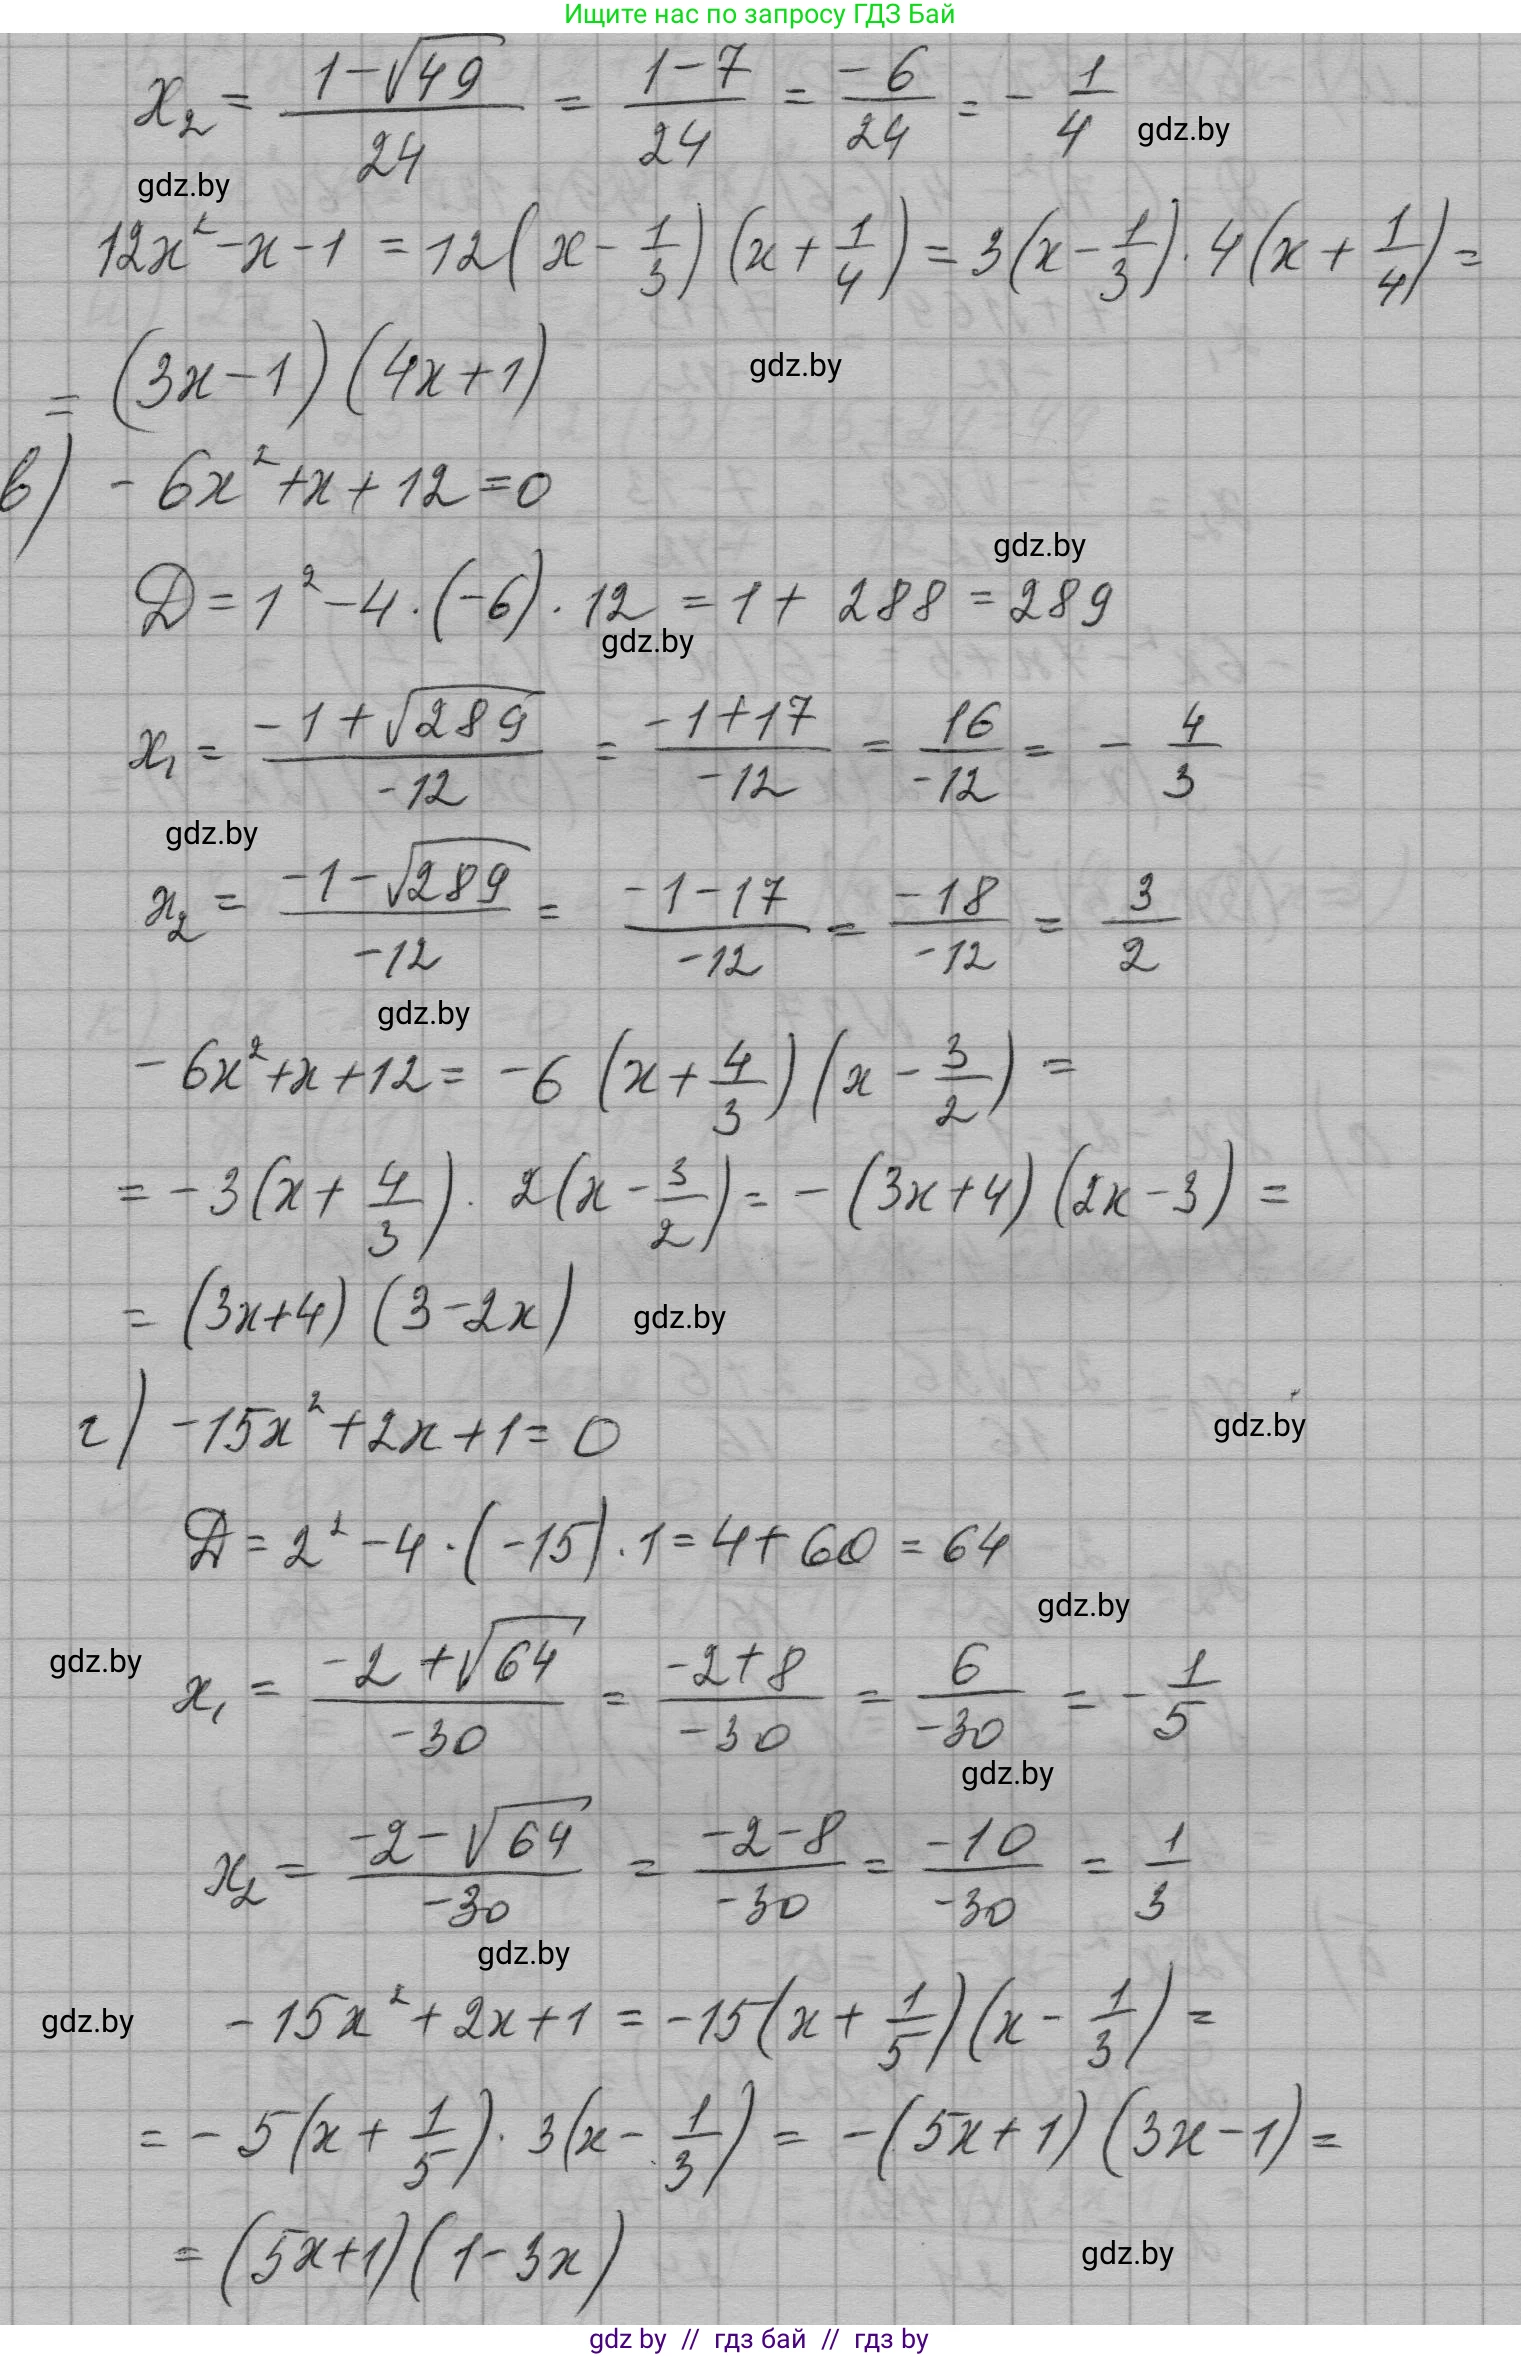 Ищите нас по запросу ГДЗ Бай
x₂ = (1-√49)/24 = (1-7)/24 = -6/24 = - 1/4
gdz.by
gdz.by
12x²-x-1 = 12(x - 1/3)(x + 1/4) = 3(x - 1/3)·4(x + 1/4) =
= (3x-1)(4x+1)
gdz.by
в) -6x²+x+12=0
gdz.by
D = 1²-4·(-6)·12 = 1+288 = 289
gdz.by
x₁ = (-1+√289)/-12 = (-1+17)/-12 = 16/-12 = - 4/3
gdz.by
x₂ = (-1-√289)/-12 = (-1-17)/-12 = -18/-12 = 3/2
gdz.by
-6x²+x+12 = -6(x + 4/3)(x - 3/2) =
= -3(x + 4/3)·2(x - 3/2) = -(3x+4)(2x-3) =
= (3x+4)(3-2x)
gdz.by
г) -15x²+2x+1=0
gdz.by
D = 2²-4·(-15)·1 = 4+60 = 64
gdz.by
gdz.by
x₁ = (-2+√64)/-30 = (-2+8)/-30 = 6/-30 = - 1/5
gdz.by
x₂ = (-2-√64)/-30 = (-2-8)/-30 = -10/-30 = 1/3
gdz.by
gdz.by
-15x²+2x+1 = -15(x + 1/5)(x - 1/3) =
= -5(x + 1/5)·3(x - 1/3) = -(5x+1)(3x-1) =
= (5x+1)(1-3x)
gdz.by
gdz by // гдз бай // гдз by